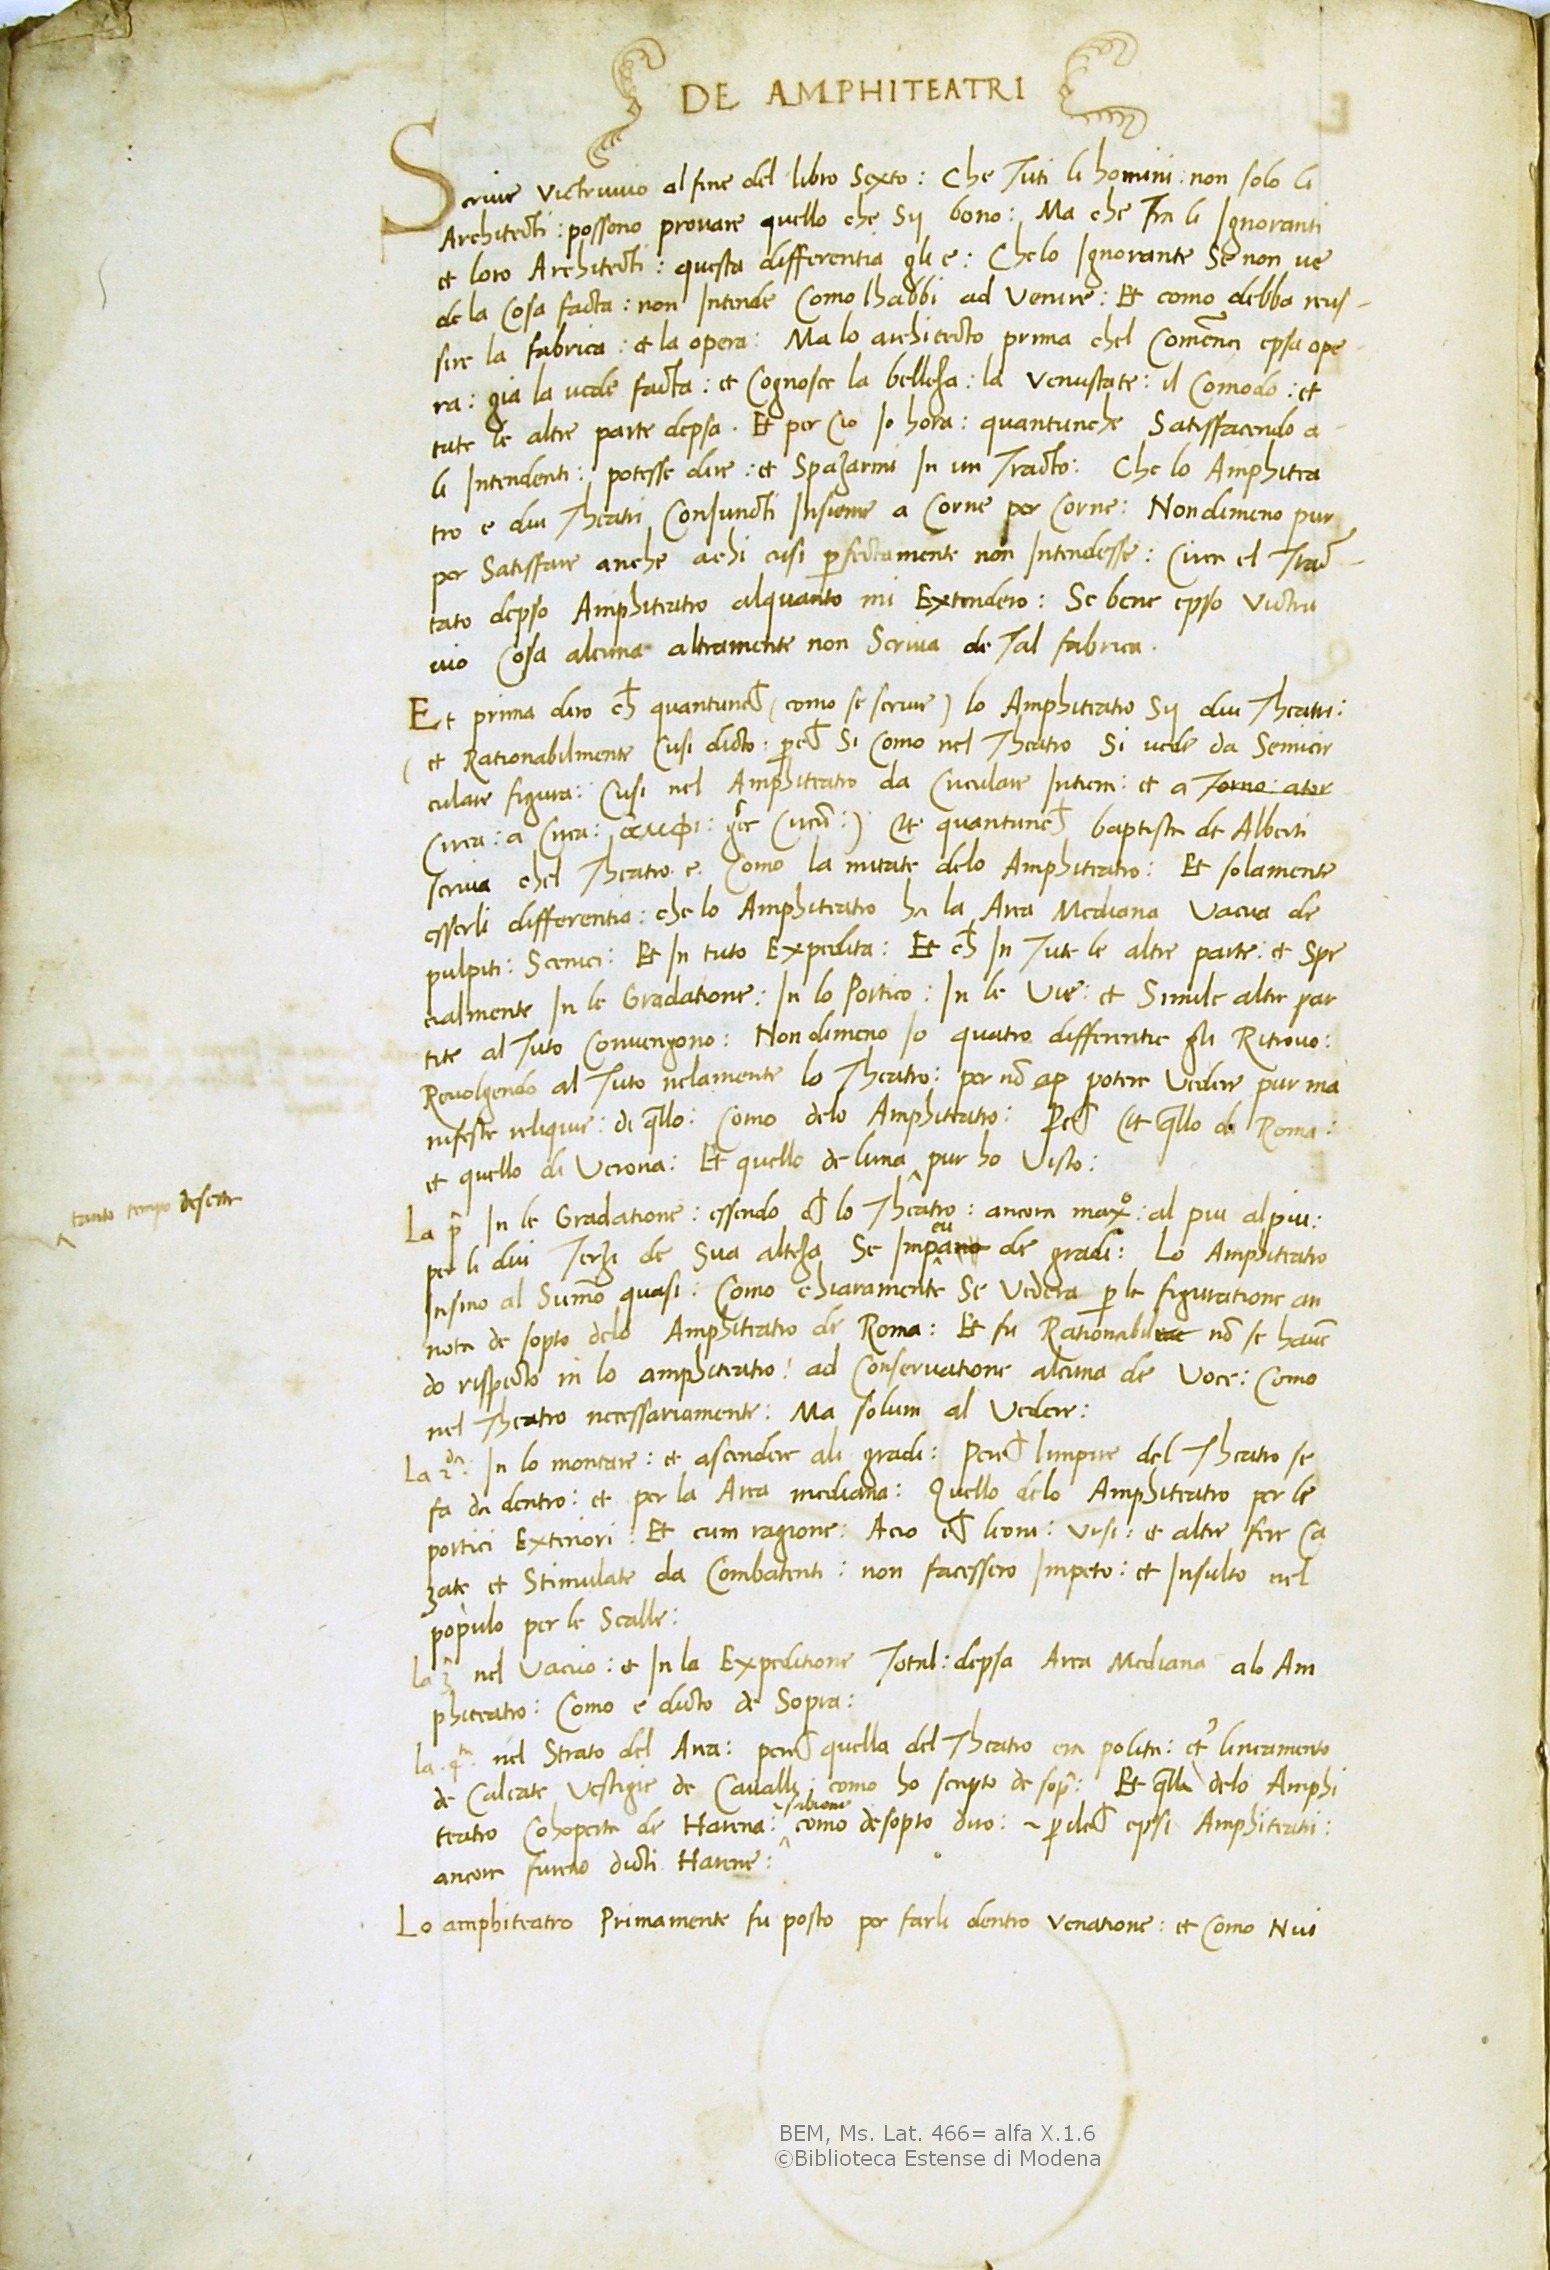 DE AMPHITEATRI
Scriue Victruuio al fine del libro Sexto: Che Tuti li homini: non solo li
Architecti: possono prouare quello che Sij bono: Ma che Fra li Ignoranti
et loro Architecti: questa differentia gli e: Chelo Ignorante Se non ue
de la Cosa facta: non Intende Como lhabbi ad Venire: Et como debba reus-
sire la fabrica: et la opera: Ma lo architecto prima chel Comēnci epsa ope-
ra: gia la uede facta: et Cognosce la belleza: la Venustate: il Comodo: et
tute le altre parte depsa. Et per Cio Io hora: quantunche Satisffacendo a-
li Intendenti: potesse dire: et Spazarmi In un Tracto: Che lo Amphitea
tro e dui Theatri Coniuncti Insieme a Corne per Corne: Non dimeno pur
per Satisffare anche achi cusi pfectamente non Intendesse: Circa el Trac-
tato depso Amphiteatro alquanto mi Extendero: Se bene epso Victru
uio Cosa alcuna altramente non Scriua de Tal fabrica.
Et prima diro ch quantunch (como se scriue) lo Amphiteatro Sij dui Theatri:
(et Rationabilmente Cusi dicto: pch Si Como nel Theatro Si uede da Semicir
culare figura: Cusi nel Amphiteatro da Circulare Intiera: et a Torno: ator
Circa: a Circa: αμφι: gce Circū:) Et quantunch baptista de Alberti
scriua chel Theatro e Como la mitate delo Amphiteatro: Et solamente
esserli differentia: che lo Amphiteatro ha la Area Mediana Vacua de
pulpiti: Scenici: Et In tuto Expedita: Et ch In Tute le altre parte: et Spe
cialmente In le Gradatione: In lo Portico: In le Vie: et Simile altre par
tite al Tuto Conuengono: Non dimeno Io quatro differentie gli Ritrouo:
Reuolgendo al Tuto nelamente lo Theatro: per nō potere Vedere pur ma
nifeste reliquie: di qllo: Como delo Amphiteatro: Pch Et qllo di Roma:
et quello di Verona: Et quello de luna pur ho Visto:
tanto tempo deserta
La p̄ In le Gradatione: essendo ch lo Theatro: ancora maxº: al piu alpiu:
per li dui Terzi de Sua alteza Se Impano eu de gradi: Lo Amphiteatro
Insino al Sumō quasi: Como chiaramente Se Vedera p le figuratione an
nota de sopto delo Amphiteatro de Roma: Et fu Rationabil nō se hauē
do rispecto in lo amphiteatro: ad Conseruatione alcuna de Voce: Como
nel Theatro necessariamente: Ma solum al Vedere:
La 2da: In lo montare: et ascendere ali gradi: Perch limpire del Theatro se
fa da dentro: et per la Area mediana: Quello delo Amphiteatro per le
portici Exteriori: Et cum ragione: Acio ch leoni: Vrsi: et altre fere Ca
zate et Stimulate da Combatenti: non facessero Impeto: et Insulto nel
populo per le Scalle:
la 3 nel Vacuo: et In la Expeditione Total: depsa Area Mediana alo Am
phiteatro: Como e dicto de Sopra:
la 4ta: nel Strato del Area: perch quella del Theatro era polita: et lineamento
de Calcate Vestigie de Caualli: como ho scripto de sop: Et qlla delo Amphi
teatro Cohoperta de Harena: sabione como desopto diro: ~ p ilch epsi Amphiteatri:
ancora fureno dicti Harene:
Lo amphiteatro Primamente fu posto per farli dentro Venatione: et Como Nui
BEM, Ms. Lat. 466= alfa X.1.6
©Biblioteca Estense di Modena